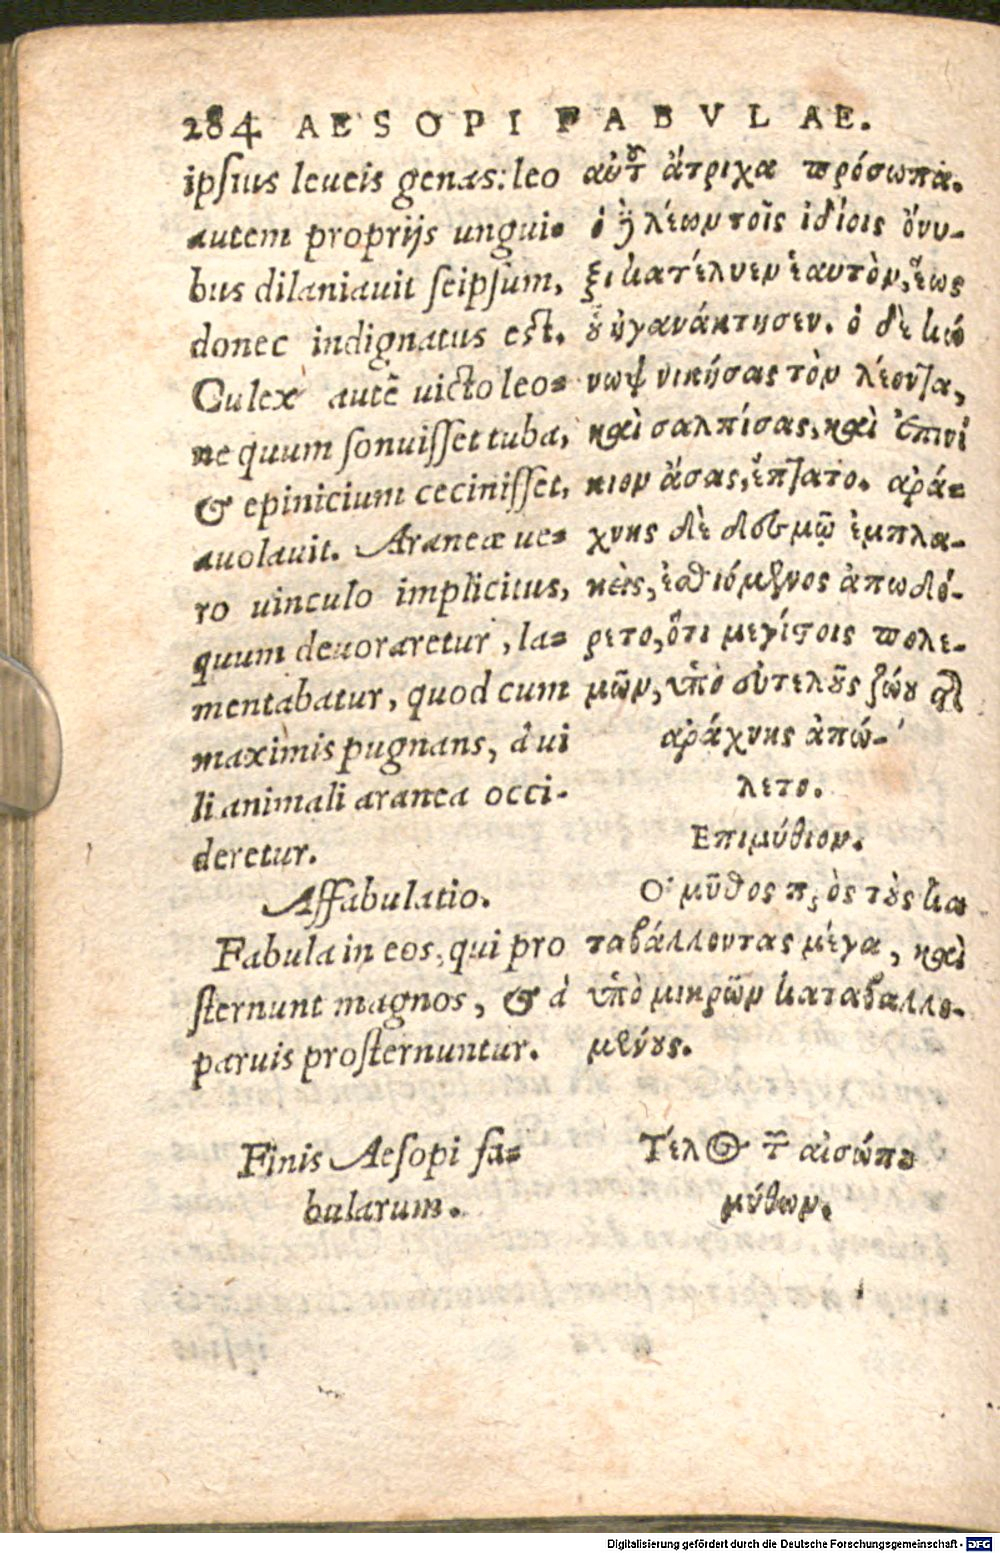 284 AESOPI FABVLAE.
ipsius leueis genas: leo
autem proprijs ungui-
bus dilaniauit seipsum,
donec indignatus est.
Culex autē uicto leo-
ne quum sonuisset tuba,
& epinicium cecinisset,
auolauit. Araneæ ue-
ro uinculo implicitus,
quum deuoraretur, la-
mentabatur, quod cum
maximis pugnans, à ui
li animali aranea occi-
deretur.
Affabulatio.
Fabula in eos, qui pro
sternunt magnos, & à
paruis prosternuntur.
Finis Aesopi fa-
bularum.
αὐτοῦ ἄτριχα πρόσωπα.
ὁ δὲ λέων τοῖς ἰδίοις ὄνυ-
ξι κατέλυεν ἑαυτὸν, ἕως
οὗ ἠγανάκτησεν. ὁ δὲ κώ
νωψ νικήσας τὸν λέοντα,
καὶ σαλπίσας, καὶ ἐπινί
κιον ᾄσας, ἔπτατο. ἀρά-
χνης δὲ δεσμῷ ἐμπλα-
κεὶς, ἐσθιόμενος ἀπωδύ-
ρετο, ὅτι μεγίστοις πολε-
μῶν, ὑπὸ εὐτελοῦς ζώου τῆς
ἀράχνης ἀπώ-
λετο.
Επιμύθιον.
Ο μῦθος πρὸς τοὺς κα
ταβάλλοντας μέγα, καὶ
ὑπὸ μικρῶν καταβαλλο-
μένους.
Τέλος τῶν αἰσώπου
μύθων.
Digitalisierung gefördert durch die Deutsche Forschungsgemeinschaft - DFG